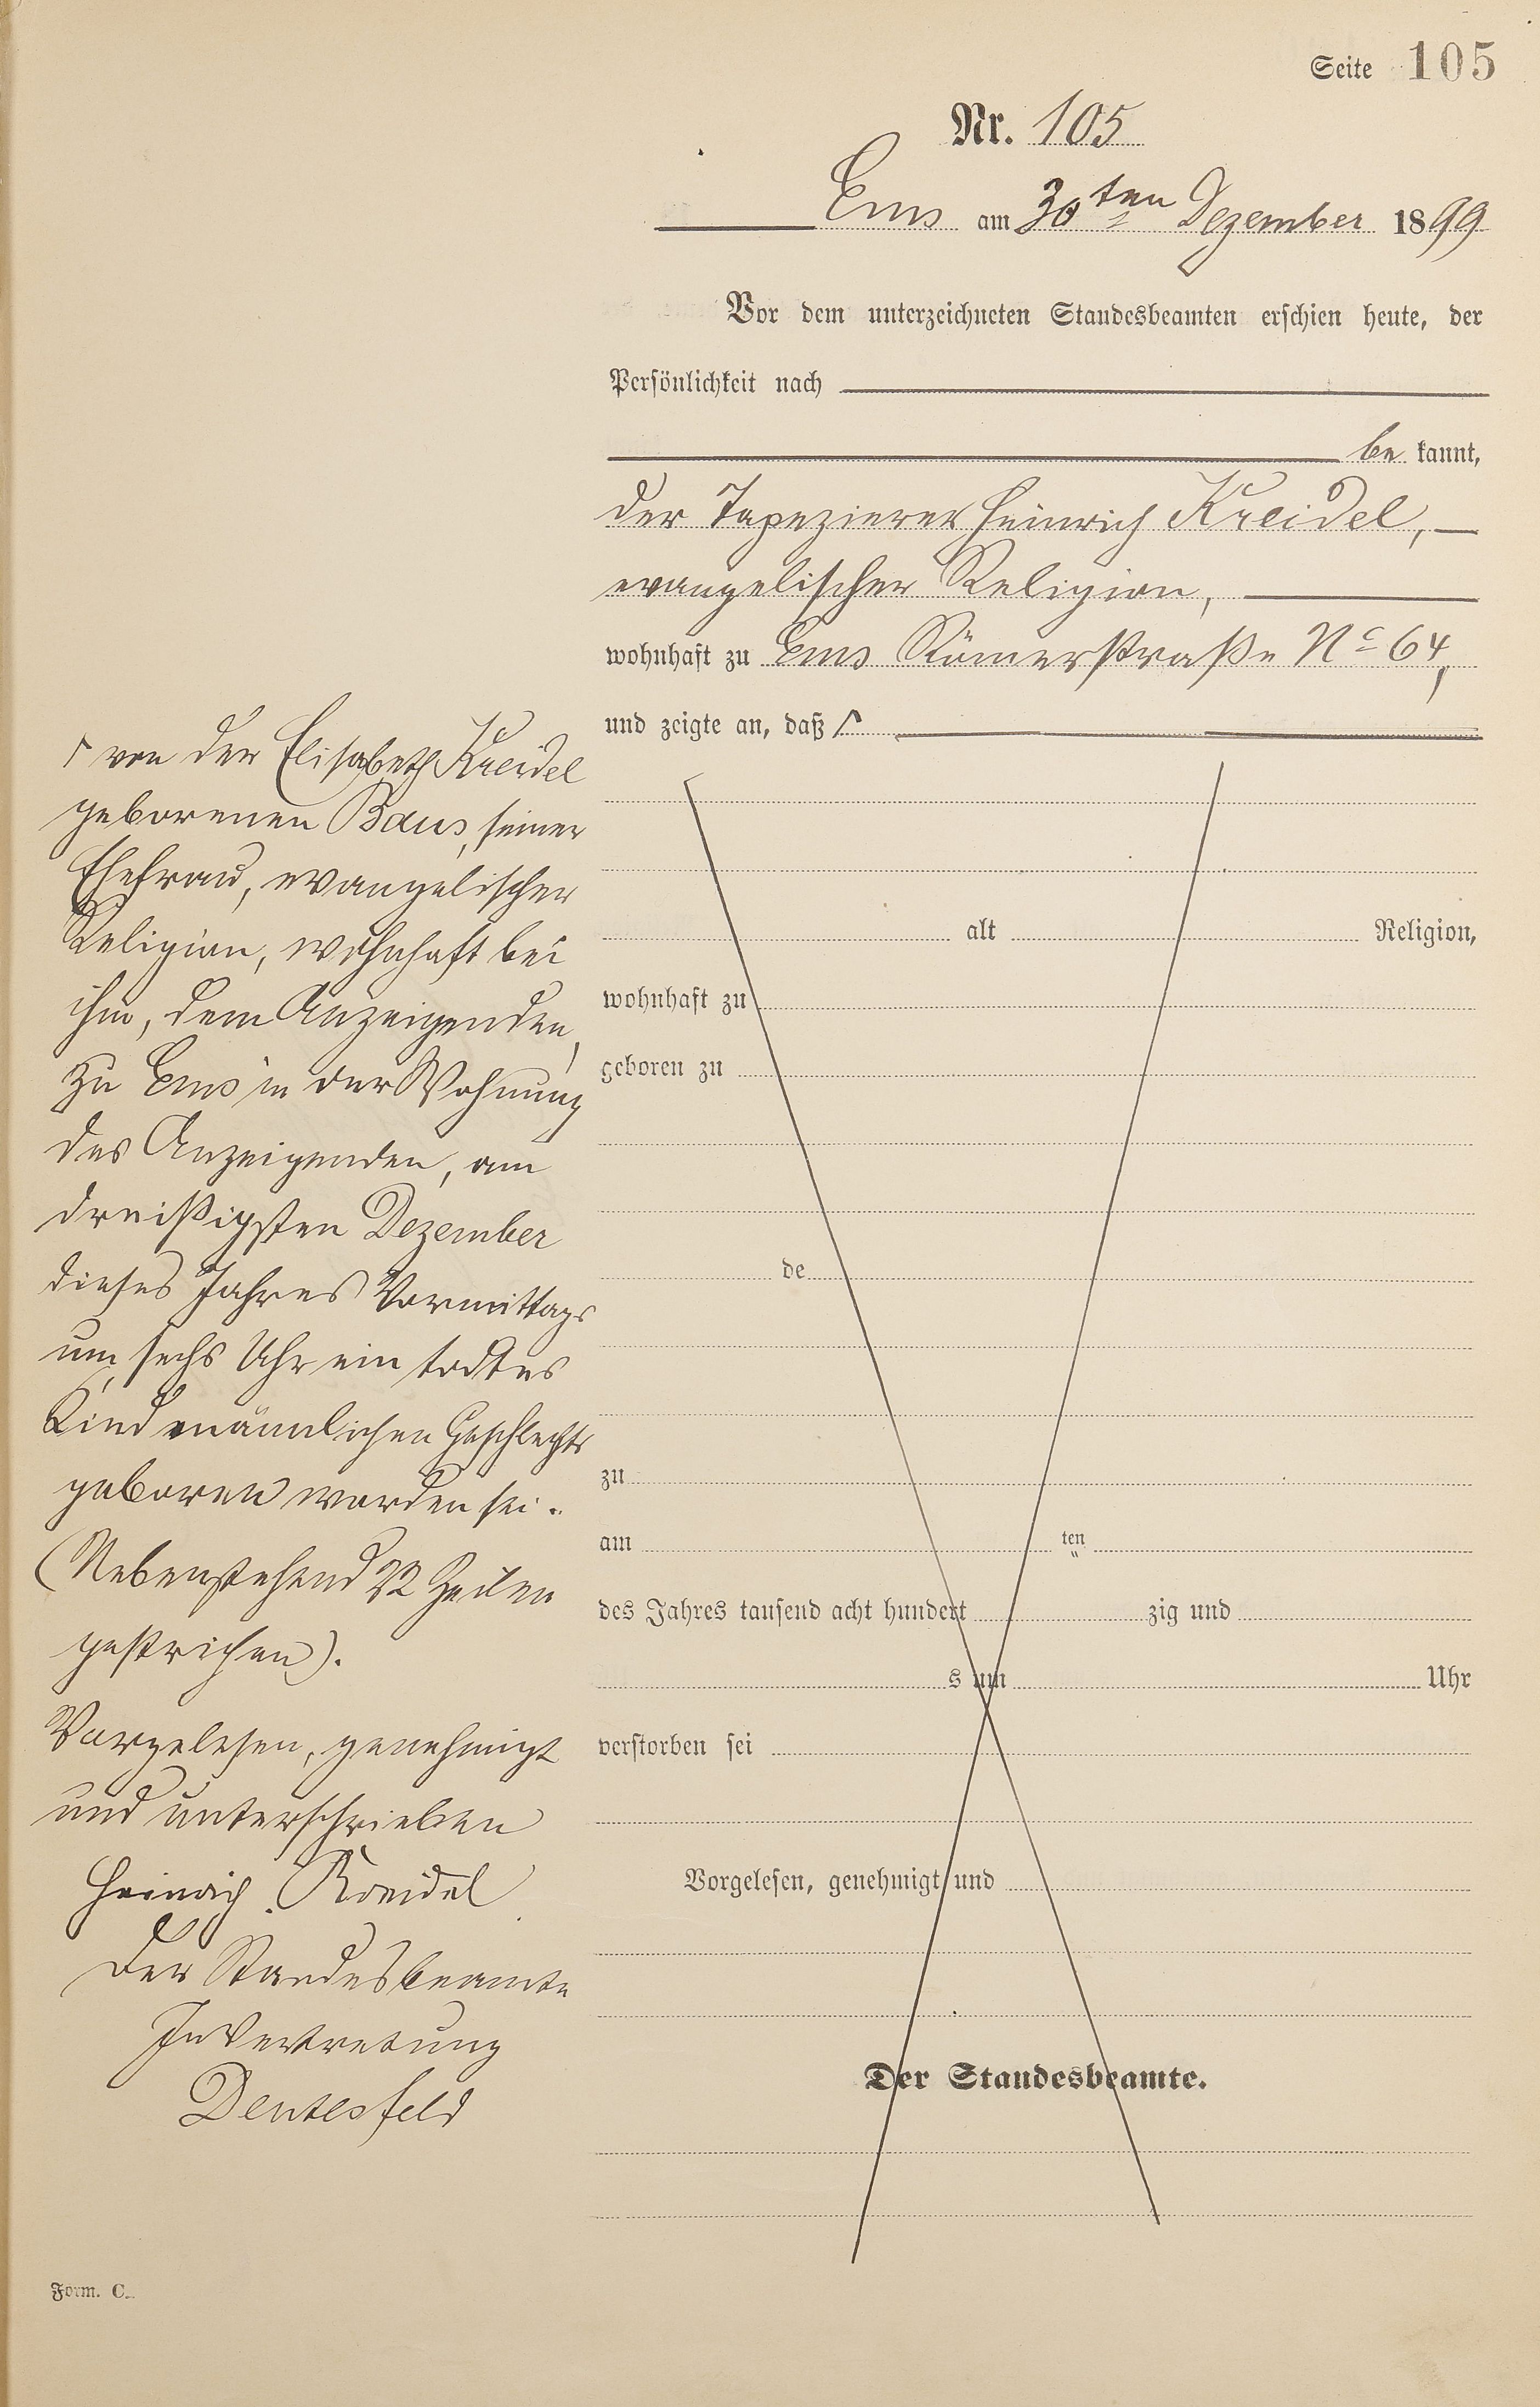 Seite 105
Nr. 105
Ems am 30ten Dezember 1899
Vor dem unterzeichneten Standesbeamten erschien heute, der
Persönlichkeit nach
be kannt,
der Tapezierer Heinrich Kreidel,
evangelischer Religion,
wohnhaft zu Ems Römerstraße No 64,
und zeigte an, daß Γ
Γ von der Elisabeth Kreidel
geborenen Baus, seiner
Ehefrau, evangelischer
Religion, wohnhaft bei
ihm, dem Anzeigenden,
zu Ems in der Wohnung
des Anzeigenden, am
dreißigsten Dezember
dieses Jahres Vormittags
um sechs Uhr ein todtes
Kind männlichen Geschlechts
geboren worden sei.
(Nebenstehend 22 Zeilen
gestrichen).
Vorgelesen, genehmigt
und unterschrieben
Heinrich Kreidel
Der Standesbeamte
In Vertretung
alt Religion,
wohnhaft zu
geboren zu
de
zu
am ten
des Jahres tausend acht hundert zig und
s um Uhr
verstorben sei
Vorgelesen, genehmigt und
Der Standesbeamte.
Form. C.